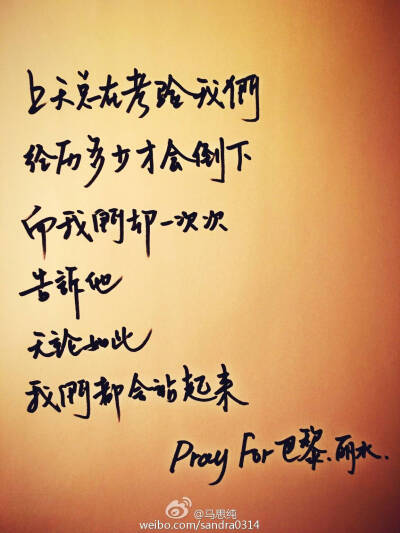 上天总在考验我們
经历多少才会倒下
而我們却一次次
告訴他
无论如此
我們都会站起来
Pray For 巴黎.丽水.
@马思纯
weibo.com/sandra0314